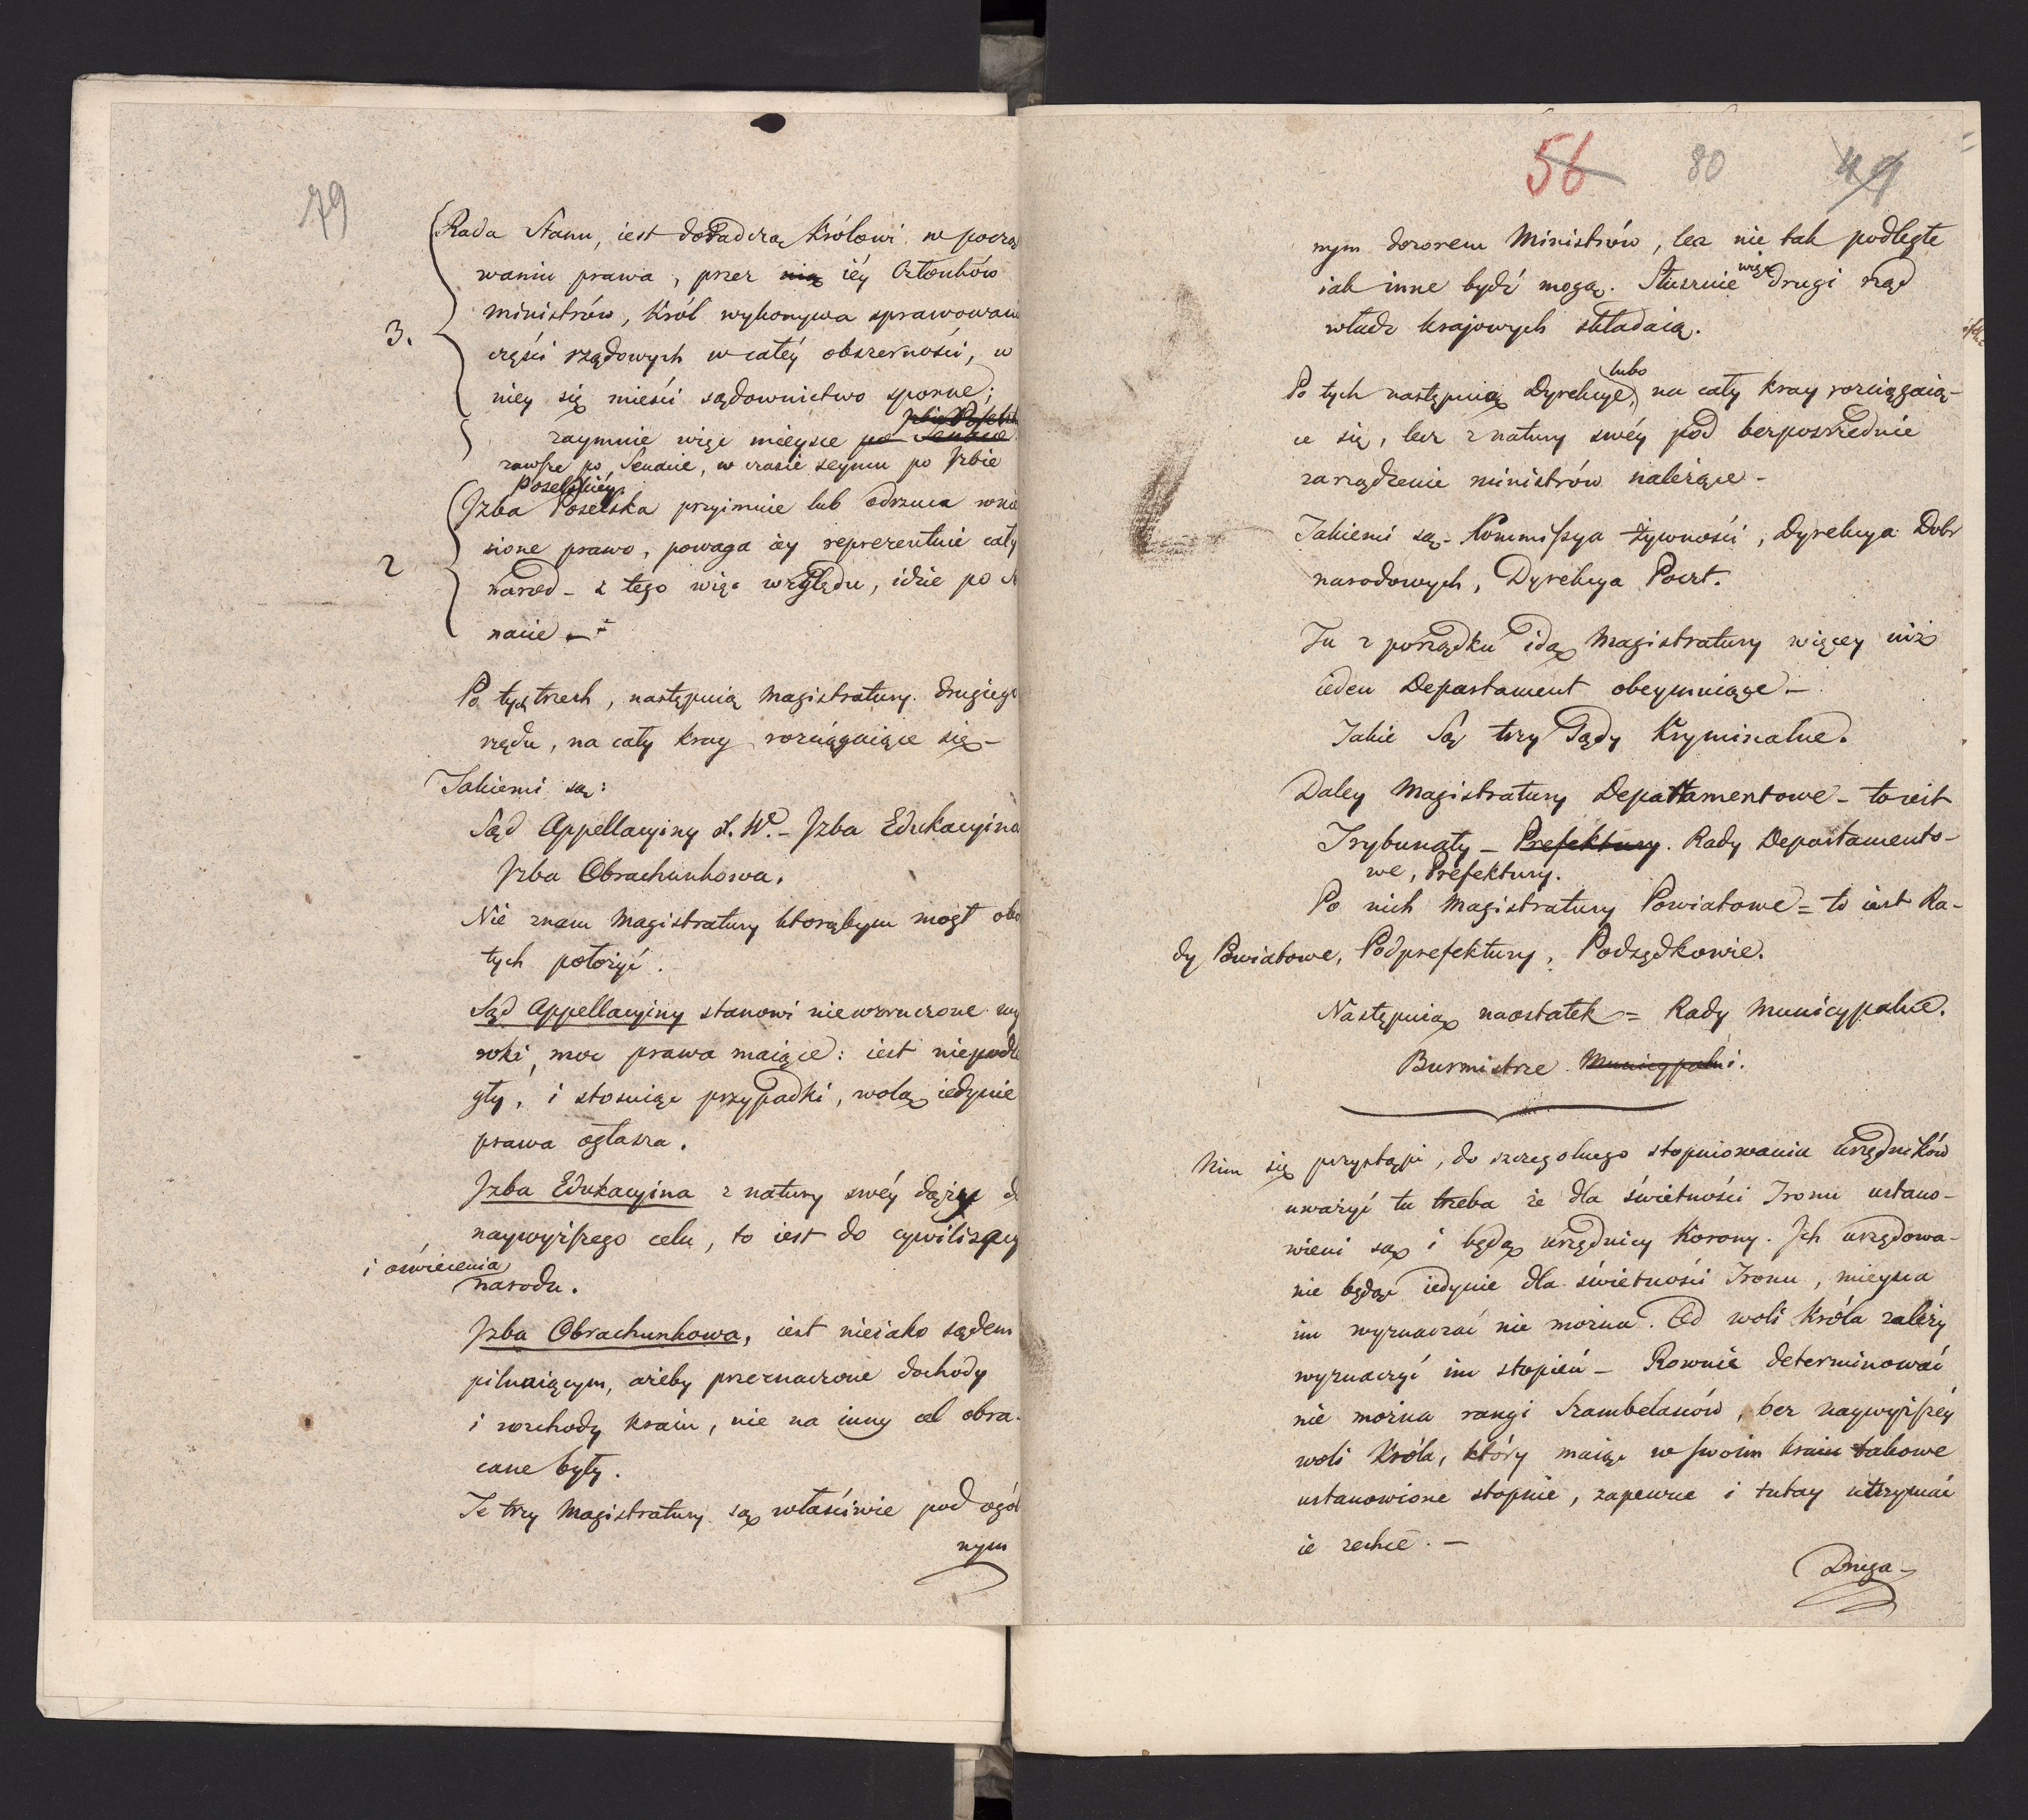 79
Rada Stanu, iest doradczą Królowi w poczy
waniu prawa, przez nią iéy Członków
ministrów, Król wykonywa sprawowani
3.
części rządowych w całéy obszerności, w
niey się mieści sądownictwo sporne;
Izbie Poselsk
zaymuie więc mieysce po Senacie
zawsze po Senacie, w czasie seymu po Izbie
Poselskiéy
Izba Poselska przyimuie lub odrzuca wnie
2
sione prawo, powaga iey reprezentuie cały
naród – z tego więc względu, idzie po Se
nacie –
Po tych trzech, następuią Magistratury drugiego
rzędu, na cały kray rozciągaiące się –
Takiemi są:
Sąd Appellacyiny X. W. – Izba Edukacyina
Izba Obrachunkowa.
Nie znam Magistratury którąbym mógł obo
tych położyć.
Sąd Appellacyiny stanowi niewzruczone wy
roki, moc prawa maiące: iest niepodle
gły, i stosuiąc przypadki, wolą iedynie
prawa ogłasza.
Izba Edukacyina z natury swéy dąży do
naywyższego celu, to iest do cywilizacy
i oświecenia
narodu.
Izba Obrachunkowa, iest nieiako sądem
pilnuiącym, ażeby przeznaczone dochody
i rozchody kraiu, nie na inny cel obra-
cane były.
Te trzy Magistratury są właściwie pod ogól
nym
56 80 49
nym dozorem Ministrów, lecz nie tak podległe
iak inne bydź mogą. Słusznie więc drugi rząd
władz krajowych składaią.
lubo
Po tych następuią Dyrekcye, na cały kray rozciągaią-
ce się, lecz z natury swéy pod bezpośrednie
zarządzenie ministrów należące –
Takiemi są – Kommissya żywności, Dyrekcya Dobr
narodowych, Dyrekcya Poczt.
Tu z porządku idą Magistratury więcey niż
ieden Departament obeymuiące –
Takie są trzy Sądy Kryminalne.
Daley Magistratury Departamentowe – to iest
Trybunały – Prefektury. Rady Departamento-
we, Prefektury.
Po nich Magistratury Powiatowe = to iest Ra-
dy Powiatowe, Podprefektury, Podsędkowie.
Następuią naostatek = Rady Municypalne.
Burmistrze Municypalni.
Nim się przystąpi, do szczególnego stopniowania urzędników
uważyć tu trzeba że dla świetności Tronu ustano-
wieni są i będą urzędnicy Korony. Ich urzędowa-
nie będąc iedynie dla świetności Tronu, mieysca
im wyznaczać nie można. Od woli Króla zależy
wyznaczyć im stopień – Rownie determinować
nie można rangi Szambelanów, bez naywyższéy
woli Króla, który maiąc w swoim kraiu takowe
ustanowione stopnie, zapewne i tutay utrzymać
ie zechce. –
Druga –